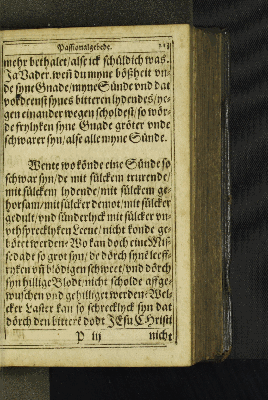 Passionalgebede. 113
mehr bethalet/ alse ick schüldich was.
Ja Vader, weñ du myne bößheit vn-
de syne Gnade/ myne Sünde vnd dat
vordeenst synes bitteren lydendes/ ye-
gen einander wegen scholdest/ so wör-
de frylyken syne Gnade gröter vnde
schwarer syn/ alse alle myne Sünde.
Wente wo könde eine Sünde so
schwar syn/ de mit sülckem trurende/
mit sülckem lydende/ mit sülckem ge-
horsam/ mit sülcker demot/ mit sülcker
gedult/ vnd sünderlyck mit sülcker vn-
vthsprecklyken Leeue/ nicht konde ge-
bötet werden? Wo kan doch eine Mis-
sedadt so grot syn/ de dörch syne leeff-
ryken vñ blödigen schweet/ vnd dörch
syn hillige Blodt/ nicht scholde affge-
wuschen vnd gehilliget werden? Wel-
cker Laster kan so schrecklyck syn dat
dörch den bitterē dodt JEsu Christi
P iij nicht